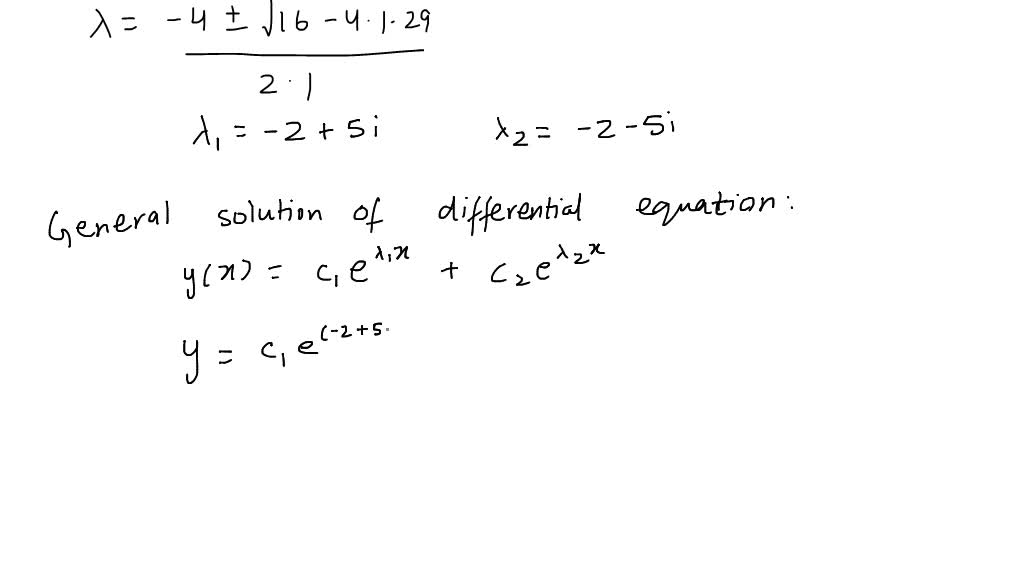 λ = -4 ± √16 - 4·1·29
2·1
λ₁ = -2 + 5i λ₂ = -2 - 5i
General solution of differential equation:
y(x) = c₁e^λ₁x + c₂e^λ₂x
y = c₁e^(-2+5